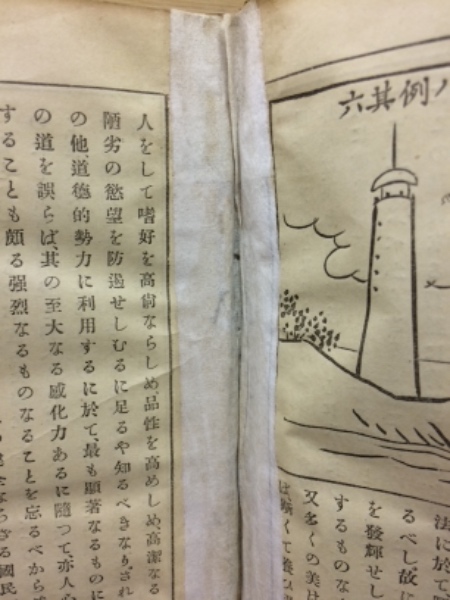 ノ例其六
法に於て
るべし故に
を發輝せし
するものな
又をくの美は
人をして嗜好を高尙ならしめ、品性を高めしめ、高潔なる
陋劣の慾望を防遏せしむるに足るや知るべきなり、され
の他、道德的勢力に利用するに於て、最も顯著なるものに
の道を誤らば、其の至大なる感化力あるに隨つて、亦人心
することも頗る强烈なるものなることを忘るべから
ならざる國民